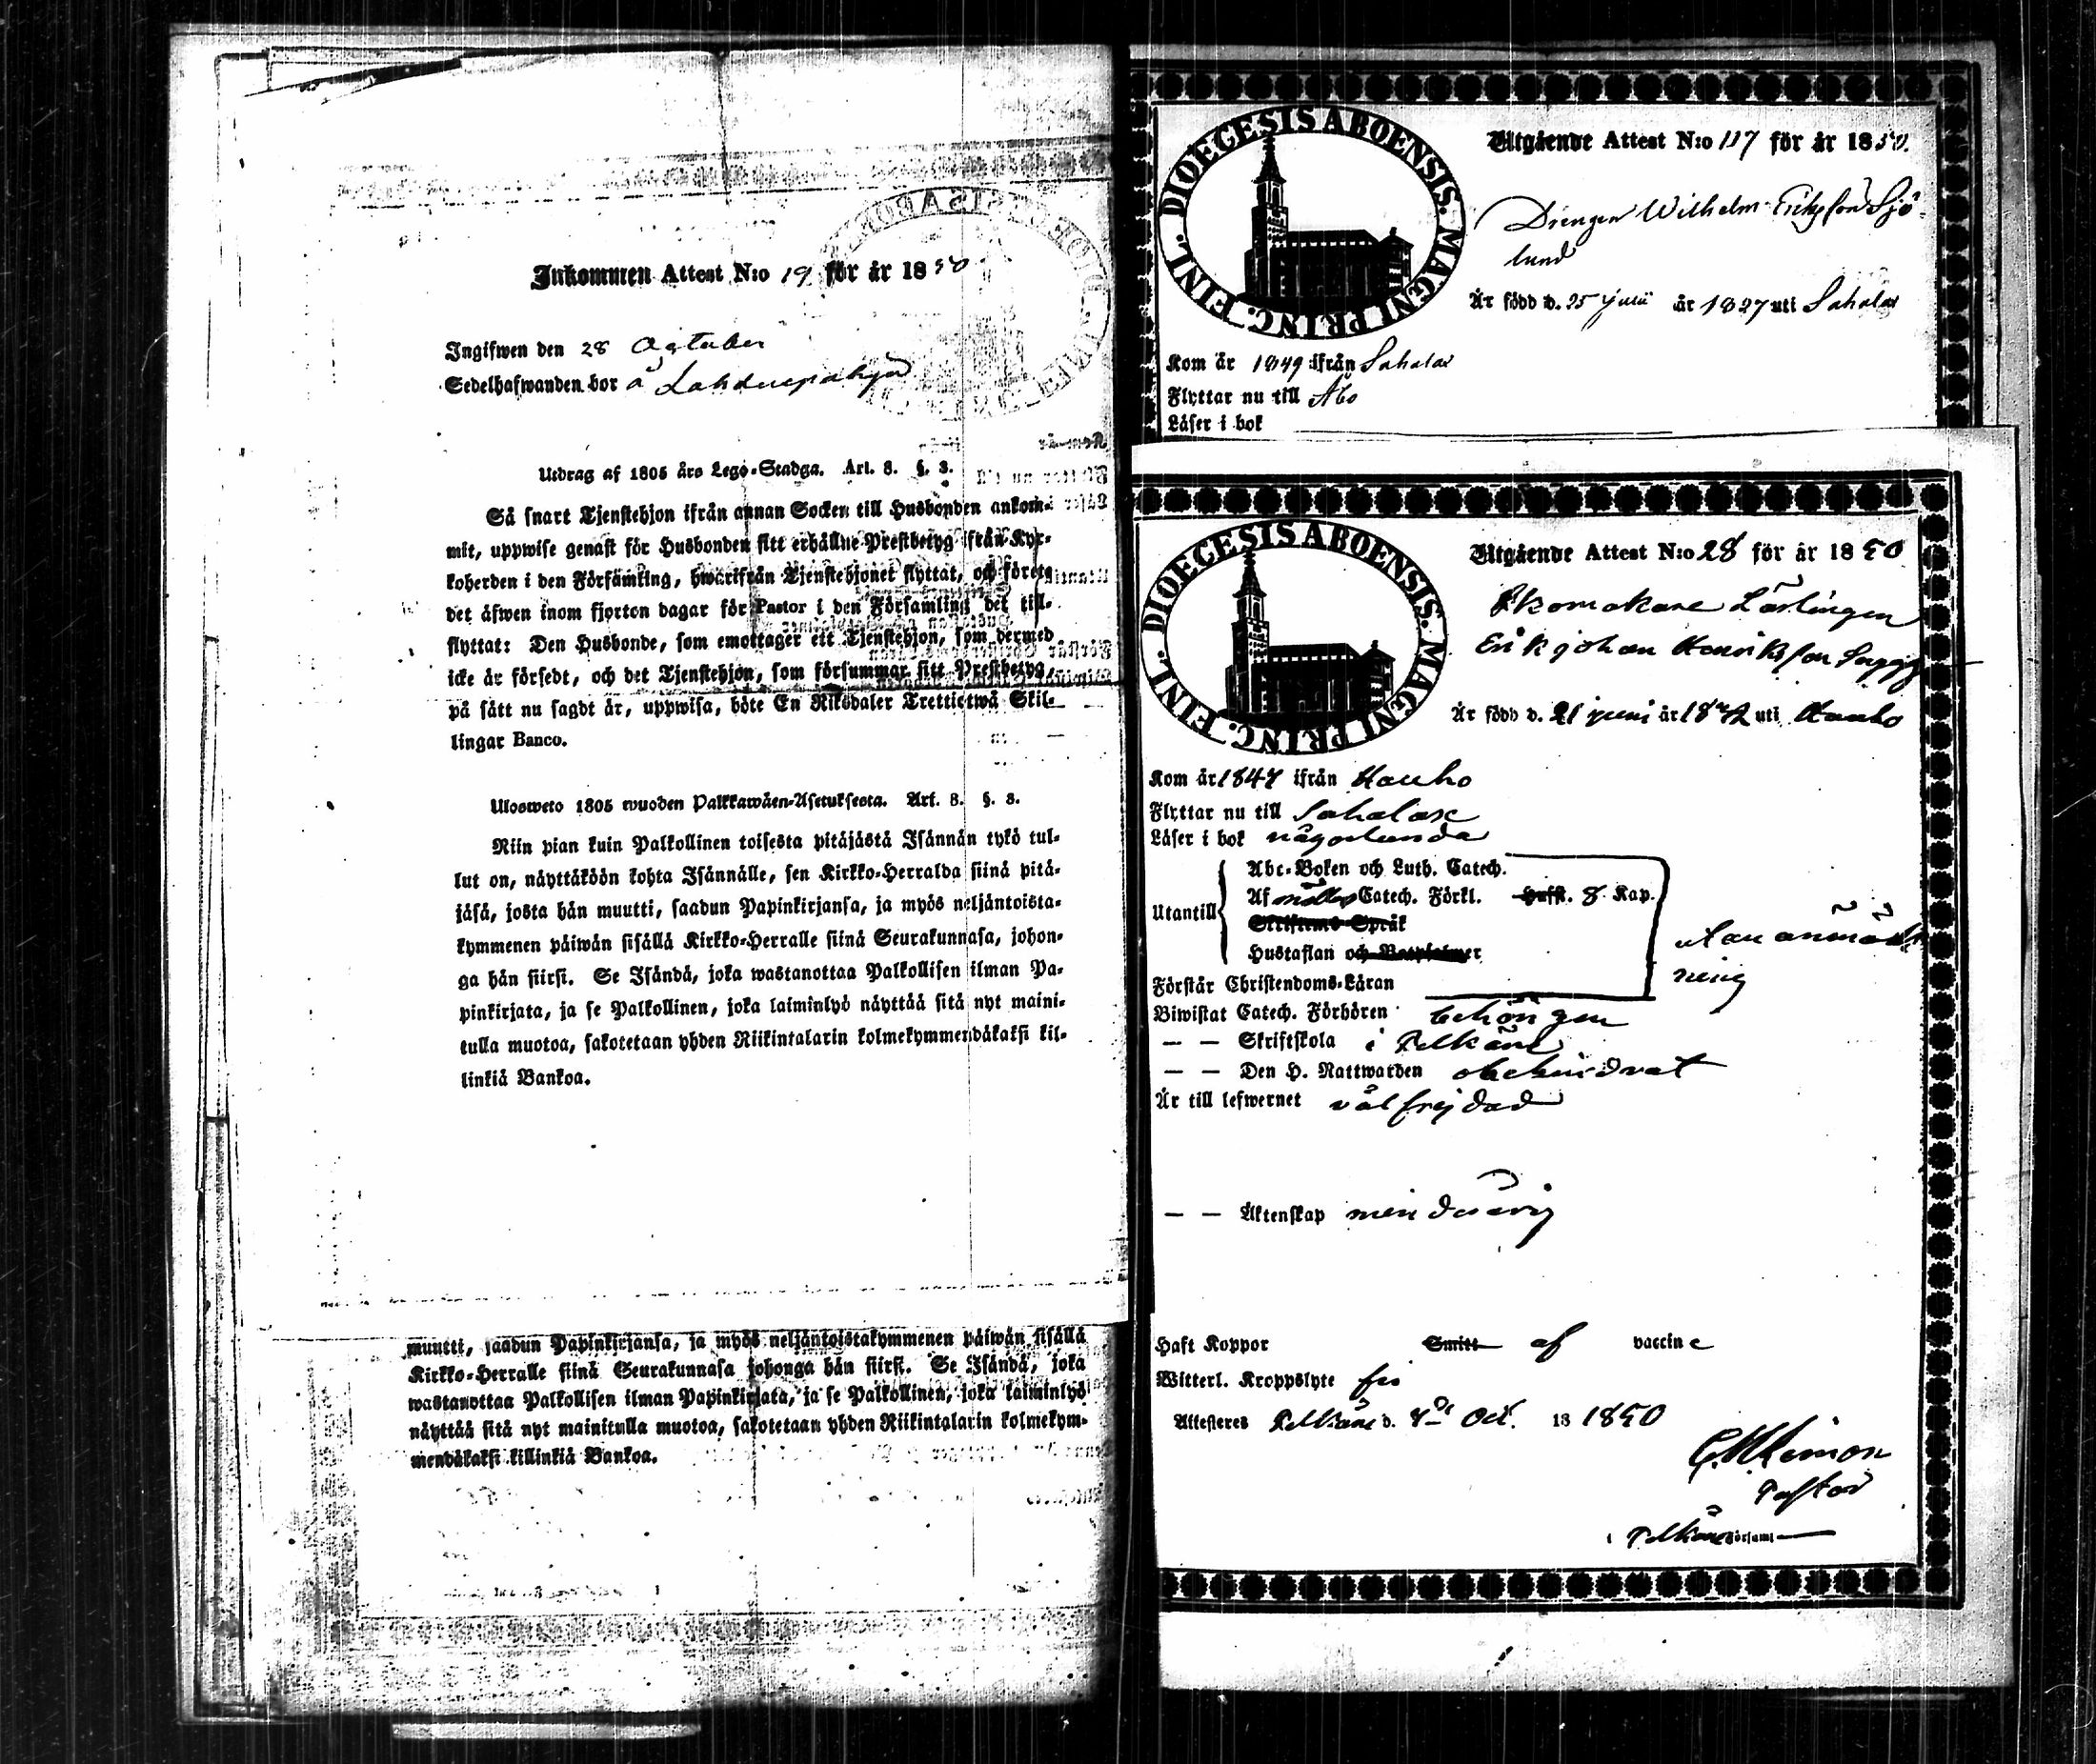 Inkommen Attest N:o 19 för år 1850
Ingifwen den 28 Octuber
Sedelhafwanden bor å
Utdrag af 1805 års Lego-Stadga. Art. 8. §. 3.
Så snart Tjenstehjon ifrån annan Socken till Husbonden ankom-
mit, uppwise genast för Husbonden sitt erhållne Prestbetyg ifrån Kyr-
koherden i den Församling, hwarifrån Tjenstehjonet flyttat, och förete
det äfwen inom fjorton dagar för Pastor i den Församling det till-
flyttat: Den Husbonde, som emottager ett Tjenstehjon, som dermed
icke är försedt, och det Tjenstehjon, som försummar sitt Prestbetyg,
på sätt nu sagdt är, uppwisa, böte En Riksdaler Trettietwå Skil-
lingar Banco.
Ulosweto 1805 wuoden Palkkawäen-Asetuksesta. Art. 8. §. 3.
Niin pian kuin Palkollinen toisesta pitäjästä Isännän tykö tul-
lut on, näyttäköön kohta Isännälle, sen Kirkko-Herralda siinä pitä-
jäsä, josta hän muutti, saadun Papinkirjansa, ja myös neljäntoista-
kymmenen päiwän sisällä Kirkko-Herralle siinä Seurakunnasa, johon-
ga hän siirsi. Se Isändä, joka wastanottaa Palkollisen ilman Pa-
pinkirjata, ja se Palkollinen, joka laiminlyö näyttää sitä nyt maini-
tulla muotoa, sakotetaan yhden Riikintalarin kolmekymmendäkaksi kil-
linkiä Bankoa.
muutti, saadun Papinkirjansa, ja myös neljäntoistakymmenen päiwän sisällä
Kirkko-Herralle siinä Seurakunnasa johonga hän siirsi. Se Isändä, joka
wastanottaa Palkollisen ilman Papinkirjata, ja se Palkollinen, joka laiminlyö
näyttää sitä nyt mainitulla muotoa, sakotetaan yhden Riikintalarin kolmekym-
mendäkaksi killinkiä Bankoa.
DIOECESIS ABOENSIS. MAGNI PRINC. FINL.
Utgående Attest N:o 117 för år 1850.
Drengen Wilhelm Eriksson Sjö-
lund
Är född d. 25 Junii år 1827 uti Sahalax
Kom år 1849 ifrån Sahalax
Flyttar nu till Åbo
Läser i bok
DIOECESIS ABOENSIS. MAGNI PRINC. FINL.
Utgående Attest N:o 28 för år 1850
Skomakare Lärlingen
Erik Johan Henriksson
Är född d. 21 juni år uti Hauho
Kom år 1847 ifrån Hauho
Flyttar nu till Sahalax
Läser i bok någorlunda
Utantill
Abc-Boken och Luth. Catech.
Af Catech. Förkl. Husst. 8 Kap.
Skriftenes Språk
Hustaflan och Botpsalmer
utan anmärk-
ning
Förstår Christendoms-Läran
Biwistat Catech. Förhören behörigen
— — Skriftskola i Pelkäne
— — Den H. Nattwarden obehindrat
Är till lefwernet välfrejdad
— — Äktenskap minderårig
Haft Koppor Smitt af vaccine
Witterl. Kroppslyte fri
Attesteres Pelkäne d. Oct. 18 1850
Pastor
i Pelkäne Församl